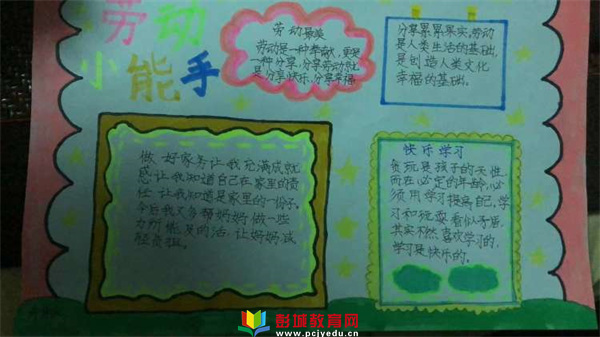 劳动
小能手
劳动最美
劳动是一种奉献,更是
一种分享,分享劳动就
是分享快乐,分享幸福
分享累累果实,劳动
是人类生活的基础,
是创造人类文化
幸福的基础。
做好家务让我充满成就
感让我知道自己在家里的责
任让我知道是家里的一份子。
今后我又与帮妈妈做一些
力所能及的活,让妈妈减
轻负担。
快乐学习
贪玩是孩子的天性
而在必定的年龄,必
须用学习提高自己,学
习和玩耍看似矛盾,
其实不然喜欢学习的,
学习是快乐的。
彭城教育网
www.pcjyedu.cn